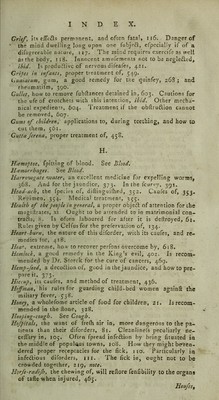 I N D E X.
Grief, its effects permanent, and often fatal, 116. Danger of
the mind dwelling long upon one subject, especially if of a
disagreeable nature, 117. The mind requires exercise as well
as the body, 118. Innocent amusements not to be neglected,
ibid. Is productive of nervous diseases, 421.
Gripes in infants, proper treatment of, 539.
Guaiacum, gum, a good remedy for the quinsey, 268; and
rheumatism, 506.
Gullet, how to remove substances detained in, 603. Cautions for
the use of crotchets with this intention, ibid. Other mecha-
nical expedients, 604. Treatment if the obstruction cannot
be removed, 607.
Gums of children, applications to, during teething, and how to
cut them, 562.
Gutta serena, proper treatment of, 458.
H.
Hæmoptoe, spitting of blood. See Blood.
Hæmorrhages. See Blood.
Harrowgate water, an excellent medicine for expelling worms,
368. And for the jaundice, 373. In the scurvy, 391.
Head-ach, the species of, distinguished, 352. Causes of, 353.
Regimen, 354. Medical treatment, 355.
Health of the people in general, a proper object of attention for the
magistrates, xi Ought to be attended to in matrimonial con-
tracts, 8. Is often laboured for after it is destroyed, 61.
Rules given by Celsus for the preservation of, 134.
Heart-burn, the nature of this disorder, with its causes, and re-
medies for, 418.
Heat, extreme, how to recover persons overcome by, 618.
Hemlock, a good remedy in the King's evil, 401. Is recom-
mended by Dr. Storck for the cure of cancers, 482.
Hemp-seed, a decoction of, good in the jaundice, and how to pre-
pare it, 373.
Hiccup, its causes, and method of treatment, 436.
Hoffman, his rules for guarding child-bed women against the
miliary fever, 538.
Honey, a wholesome article of food for children, 21. Is recom-
mended in the stone, 328.
Hooping-cough. See Cough.
Hospitals, the want of fresh air in, more dangerous to the pa-
tients than their disorders, 81. Cleanliness peculiarly ne-
cessary in, 105. Often spread infection by being situated in
the middle of populous towns, 108. How they might be ren-
dered proper receptacles for the sick, 110. Particularly in
infectious disorders, 111. The sick in, ought not to be
crowded together, 219, note.
Horse-radish, the chewing of, will restore sensibility to the organs
of taste when injured, 465.
Houses,